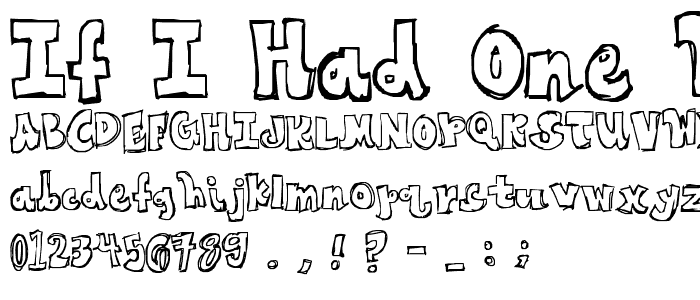 If I Had One
ABCDEFGHIJKLMNOPQRSTUVW
abcdefghijklmnopqrstuvwxyz
0123456789 . , ! ? - _ : ;